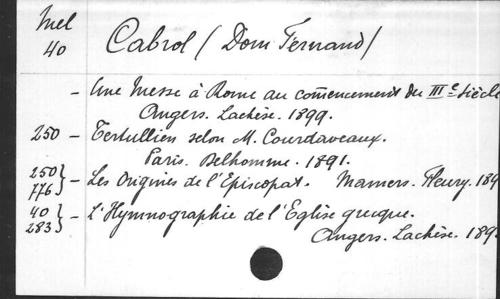 Mel
40 Cabrol (Dom Fernand)
- Une Messe à Rome au com̃encement du IIIe Siècle
Angers. Lachèse. 1899.
250 - Tertullien selon M. Courdaveaux.
Paris. Delhomme. 1891.
250} 776} - Les Origines de l'Episcopat. Mamers. Fleury. 189
40} 283} - L'Hymnographie de l'Eglise grecque.
Angers. Lachèse. 189